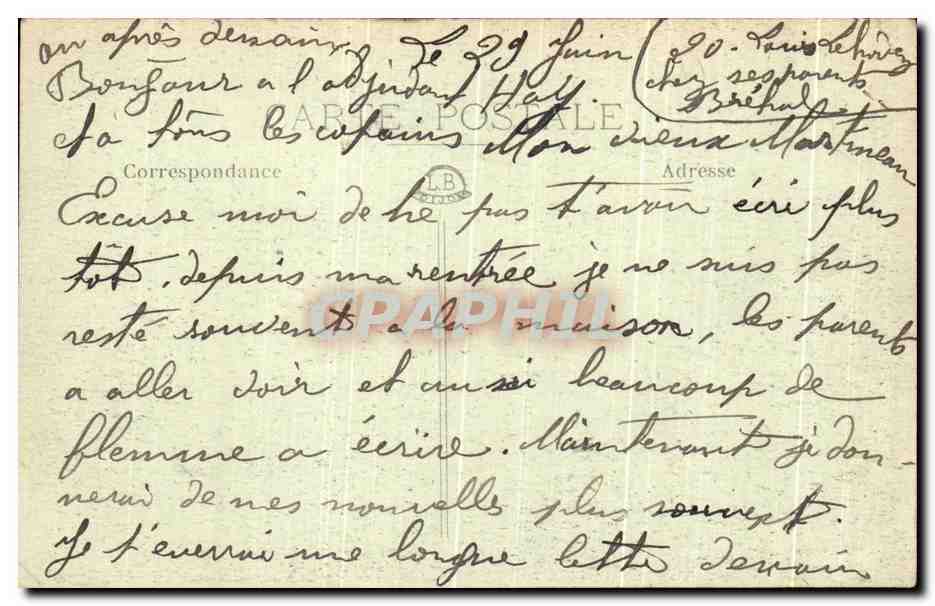 Le 29 Juin 20. Louis
chez ses parents
Bréhal
CARTE POSTALE
Mon vieux Martineau
Correspondance Adresse
LB
DIJON
Excuse moi de ne pas t'avoir écri plus
tôt, depuis ma rentrée je ne suis pas
resté souvent a la maison, les parents
CPAPHIL
a aller voir et aussi beaucoup de
flemme a écrire. Maintenant je don-
nerai de mes nouvelles plus souvent.
Je t'enverrai une longue lettre demain
ou après demain.
Bonjour a l'adjudant Hay
et a tous les copains